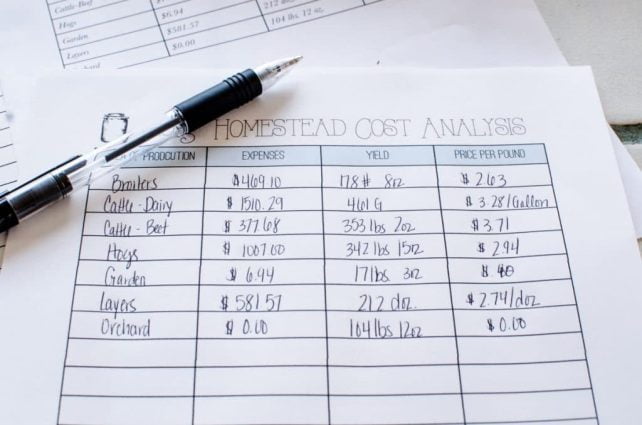 Cattle-Beef
Hogs $6.94 104 lbs. 12 oz.
Garden $581.57
Layers $0.00
Orchard
Homestead Cost Analysis
EXPENSES YIELD PRICE PER POUND
Broilers $469.10 178# 8oz $2.63
Cattle-Dairy $1510.29 461 G $3.28/Gallon
Cattle-Beef $377.68 353 lbs 2oz $3.71
Hogs $1007.00 342 lbs 15oz $2.94
Garden $6.94 171 lbs 3oz
Layers $581.57 212 doz. $2.74/doz
Orchard $0.00 104 lbs 12oz $0.00